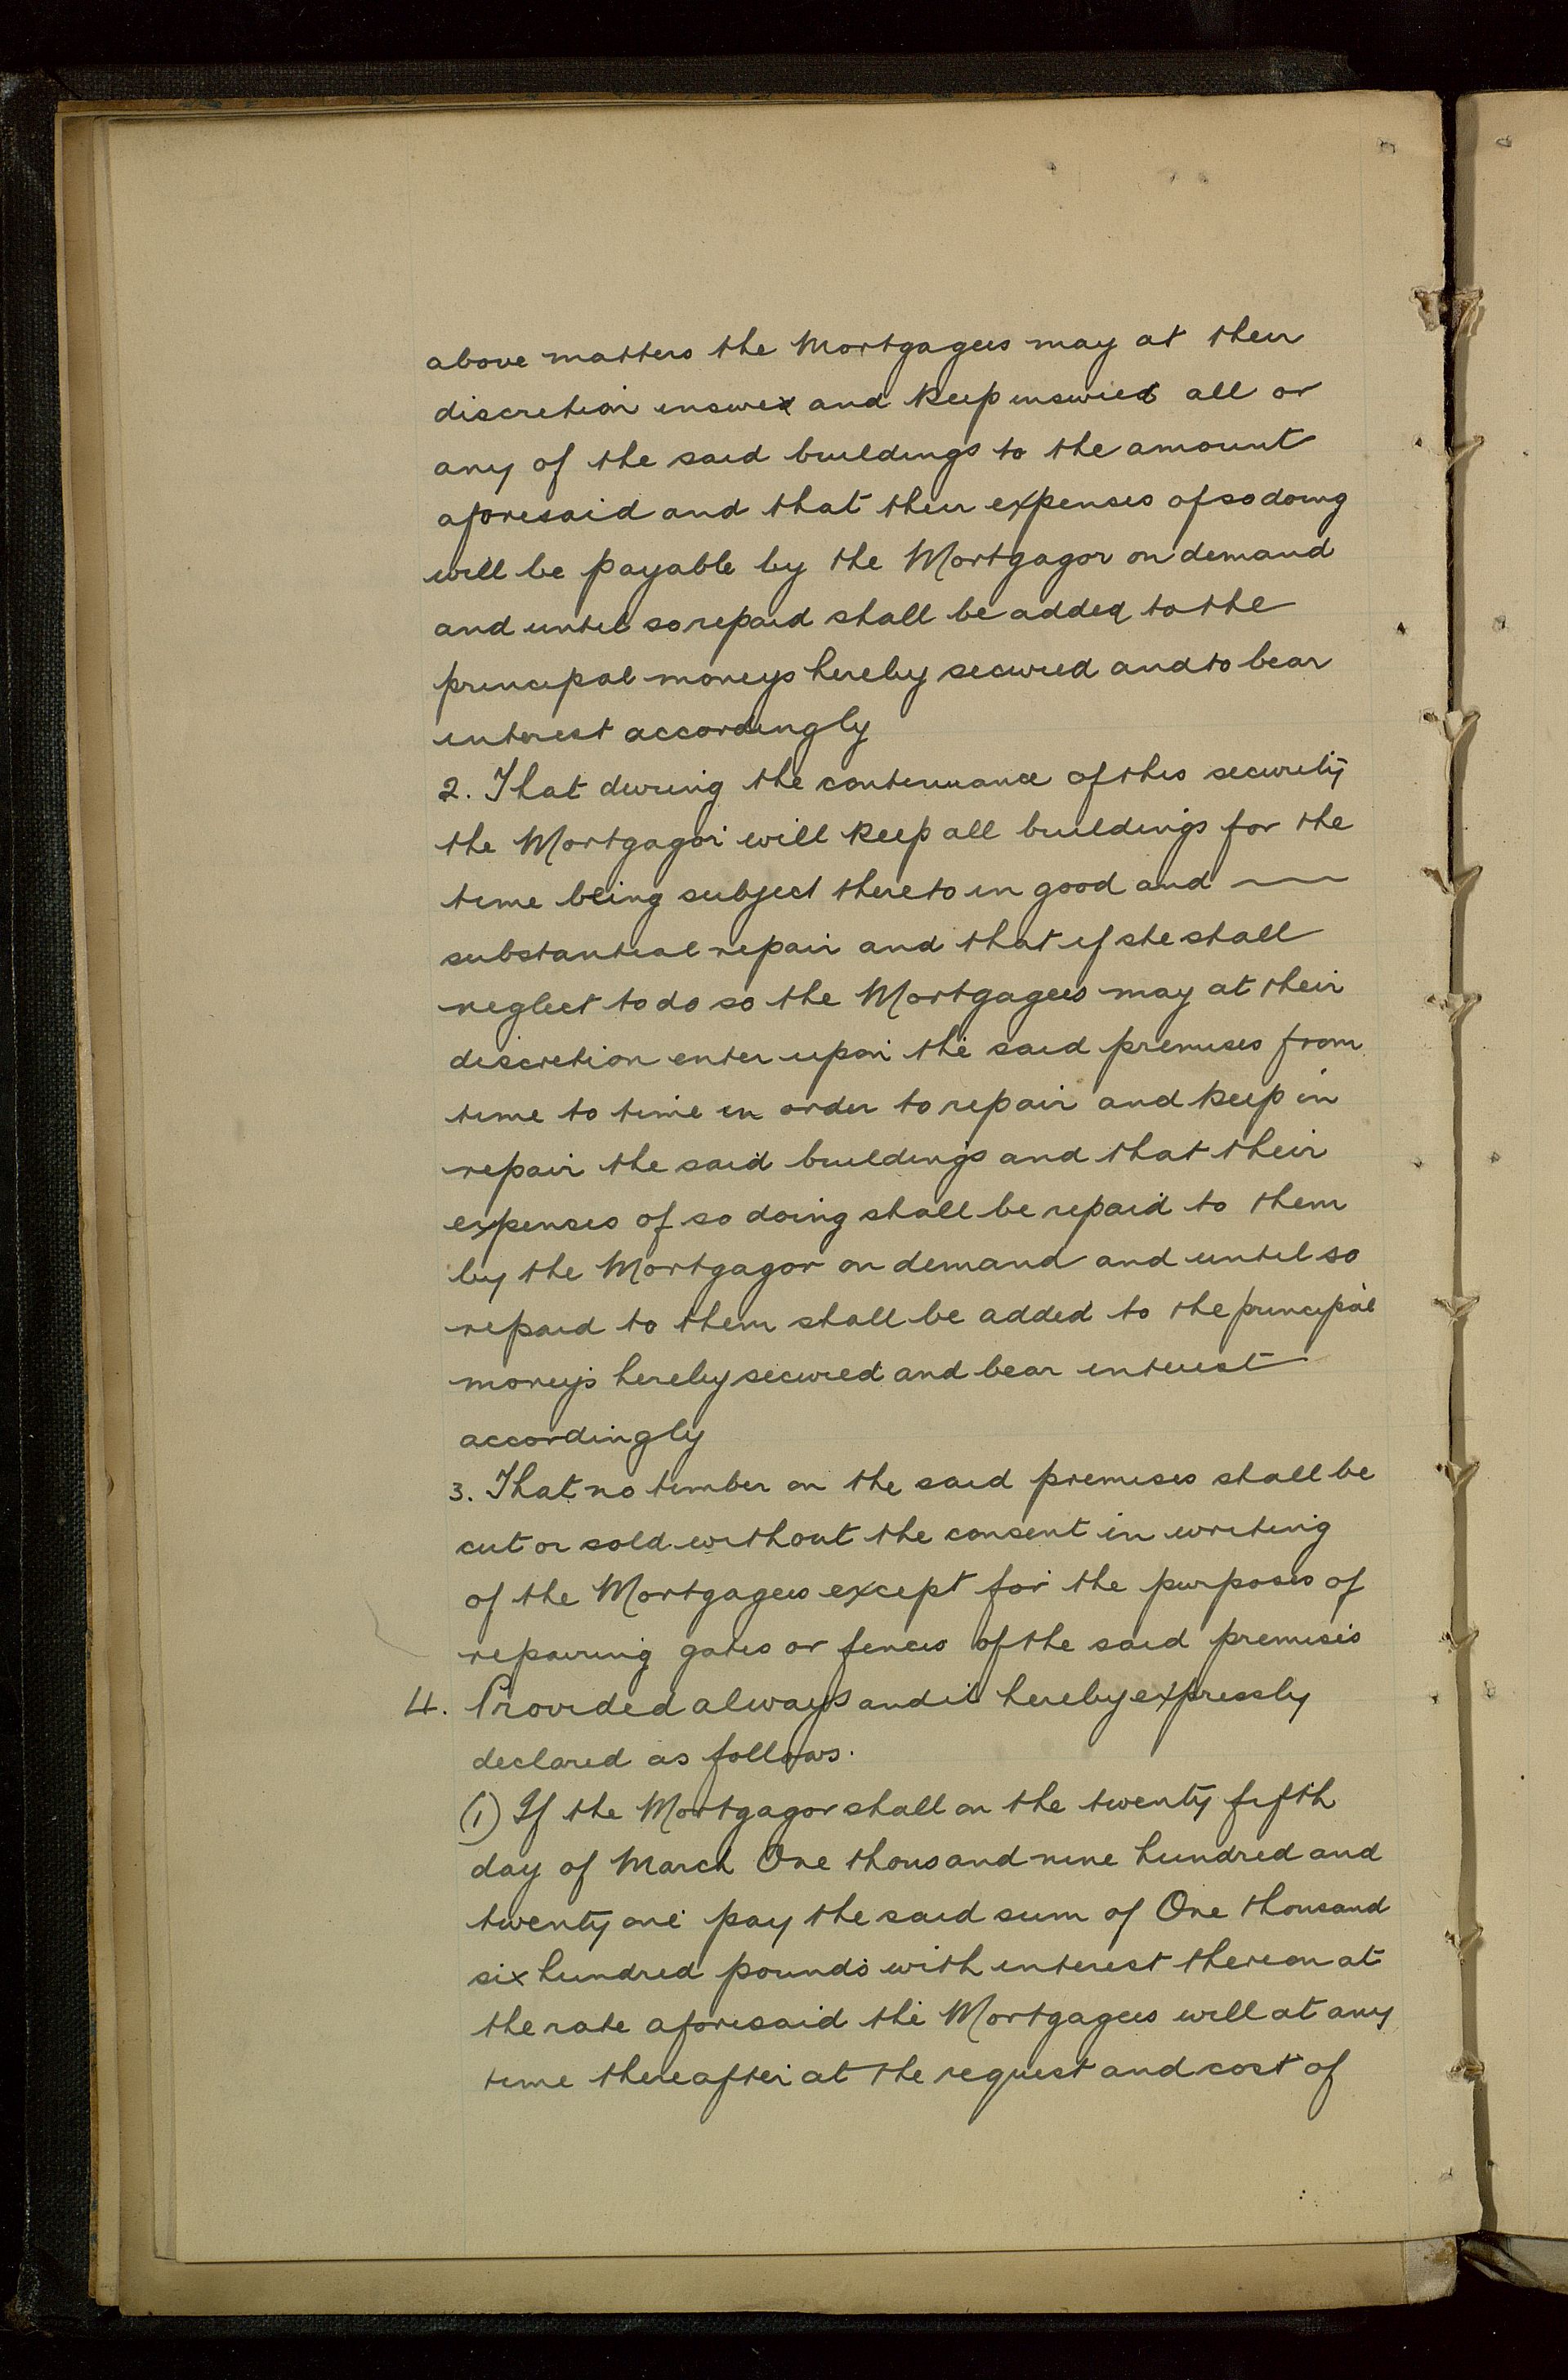 above matters the Mortgagees may at their
discretion insure and keep insured all or
any of the said buildings to the amount
aforesaid and that their expenses of so doing
will be payable by the Mortgagor on demand
and until so repaid shall be added to the
principal moneys hereby secured and to bear
interest accordingly
2. That during the continuance of this security
the Mortgagor will keep all buildings for the
time being subject thereto in good and
substantial repair and that if she shall
neglect to do so the Mortgagees may at their
discretion enter upon the said premises from
time to time in order to repair and keep in
repair the said buildings and that their
expenses of so doing shall be repaid to them
by the Mortgagor on demand and until so
repaid to them shall be added to the principal
moneys hereby secured and bear interest
accordingly
3. That no timber on the said premises shall be
cut or sold without the consent in writing
of the Mortgagees except for the purposes of
repairing gates or fences of the said premises
4. Provided always and it hereby expressly
declared as follows.
(1) If the Mortgagor shall on the twenty fifth
day of March One thousand nine hundred and
twenty one pay the said sum of One thousand
six hundred pounds with interest thereon at
the rate aforesaid the Mortgagees will at any
time thereafter at the request and cost of